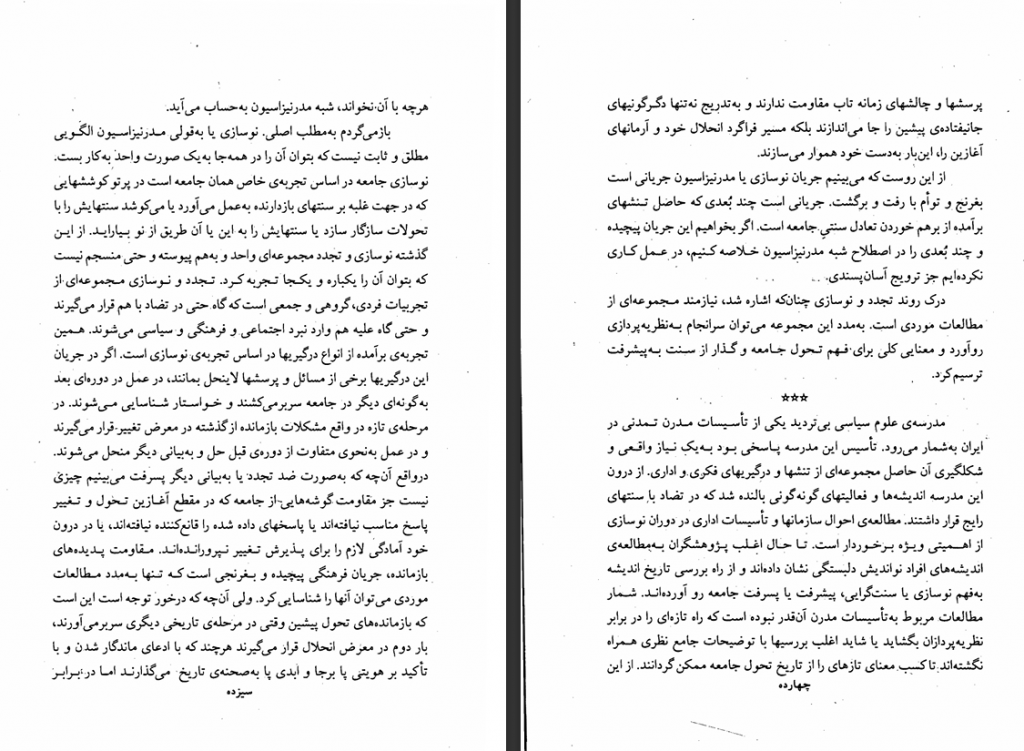 هرچه با آن نخواند، شبه مدرنیزاسیون به‌حساب می‌آید.
بازمی‌گردم به‌مطلب اصلی. نوسازی یا به‌قولی مدرنیزاسیون الگویی
مطلق و ثابت نیست که بتوان آن را در همه‌جا به‌یک صورت واحد به‌کار بست.
نوسازی جامعه در اساس تجربه‌ی خاص همان جامعه است در پرتو کوششهایی
که در جهت غلبه بر سنتهای بازدارنده به‌عمل می‌آورد یا می‌کوشد سنتهایش را با
تحولات سازگار سازد یا سنتهایش را به این یا آن طریق از نو بیاراید. از این
گذشته نوسازی و تجدد مجموعه‌ای واحد و به‌هم پیوسته و حتی منسجم نیست
که بتوان آن را یکباره و یکجا تجربه کرد. تجدد و نوسازی مجموعه‌ای از
تجربیات فردی، گروهی و جمعی است که گاه حتی در تضاد با هم قرار می‌گیرند
و حتی گاه علیه هم وارد نبرد اجتماعی و فرهنگی و سیاسی می‌شوند. همین
تجربه‌ی برآمده از انواع درگیریها در اساس تجربه‌ی نوسازی است. اگر در جریان
این درگیریها برخی از مسائل و پرسشها لاینحل بمانند، در عمل در دوره‌ای بعد
به‌گونه‌ای دیگر در جامعه سربرمی‌کشند و خواستار شناسایی می‌شوند. در
مرحله‌ی تازه در واقع مشکلات بازمانده ازگذشته در معرض تغییر قرار می‌گیرند
و در عمل به‌نحوی متفاوت از دوره‌ی قبل حل و به‌بیانی دیگر منحل می‌شوند.
درواقع آن‌چه که به‌صورت ضد تجدد یا به‌بیانی دیگر پسرفت می‌بینیم چیزی
نیست جز مقاومت گوشه‌هایی از جامعه که در مقطع آغازین تحول و تغییر
پاسخ مناسب نیافته‌اند یا پاسخهای داده شده را قانع‌کننده نیافته‌اند، یا در درون
خود آمادگی لازم را برای پذیرش تغییر نپرورانده‌اند. مقاومت پدیده‌های
بازمانده، جریان فرهنگی پیچیده و بغرنجی است که تنها به‌مدد مطالعات
موردی می‌توان آنها را شناسایی کرد. ولی آن‌چه که درخور توجه است این است
که بازمانده‌های تحول پیشین وقتی در مرحله‌ی تاریخی دیگری سربرمی‌آورند،
بار دوم در معرض انحلال قرار می‌گیرند هرچند که با ادعای ماندگار شدن و با
تأکید بر هویتی پا برجا و ابدی پا به‌صحنه‌ی تاریخ می‌گذارند اما در برابر
سیزده
پرسشها و چالشهای زمانه تاب مقاومت ندارند و به‌تدریج نه‌تنها دگرگونیهای
جانیفتاده‌ی پیشین را جا می‌اندازند بلکه مسیر فراگرد انحلال خود و آرمانهای
آغازین را، این‌بار به‌دست خود هموار می‌سازند.
از این روست که می‌بینیم جریان نوسازی یا مدرنیزاسیون جریانی است
بغرنج و توأم با رفت و برگشت. جریانی است چند بُعدی که حاصل تنشهای
برآمده از برهم خوردن تعادل سنتیِ جامعه است. اگر بخواهیم این جریان پیچیده
و چند بُعدی را در اصطلاح شبه مدرنیزاسیون خلاصه کنیم، در عمل کاری
نکرده‌ایم جز ترویج آسان‌پسندی.
درک روند تجدد و نوسازی چنان‌که اشاره شد، نیازمند مجموعه‌ای از
مطالعات موردی است. به‌مدد این مجموعه می‌توان سرانجام به‌نظریه‌پردازی
روآورد و معنایی کلی برای فهم تحول جامعه و گذار از سنت به‌پیشرفت
ترسیم‌کرد.
***
مدرسه‌ی علوم سیاسی بی‌تردید یکی از تأسیسات مدرن تمدنی در
ایران به‌شمار می‌رود. تأسیس این مدرسه پاسخی بود به‌یک نیاز واقعی و
شکلگیری آن حاصل مجموعه‌ای از تنشها و درگیریهای فکری و اداری. از درون
این مدرسه اندیشه‌ها و فعالیتهای گونه‌گونی بالنده شد که در تضاد با سنتهای
رایج قرار داشتند. مطالعه‌ی احوال سازمانها و تأسیسات اداری در دوران نوسازی
از اهمیتی ویژه برخوردار است. تا حال اغلب پژوهشگران به‌مطالعه‌ی
اندیشه‌های افراد نواندیش دلبستگی نشان داده‌اند و از راه بررسی تاریخ اندیشه
به‌فهم نوسازی یا سنت‌گرایی، پیشرفت یا پسرفت جامعه رو آورده‌اند. شمار
مطالعات مربوط به‌تأسیسات مدرن آن‌قدر نبوده است که راه تازه‌ای را در برابر
نظریه‌پردازان بگشاید یا شاید اغلب بررسیها با توضیحات جامع نظری همراه
نگشته‌اند تا کسب معنای تازهای را از تاریخ تحول جامعه ممکن گردانند. از این
چهارده